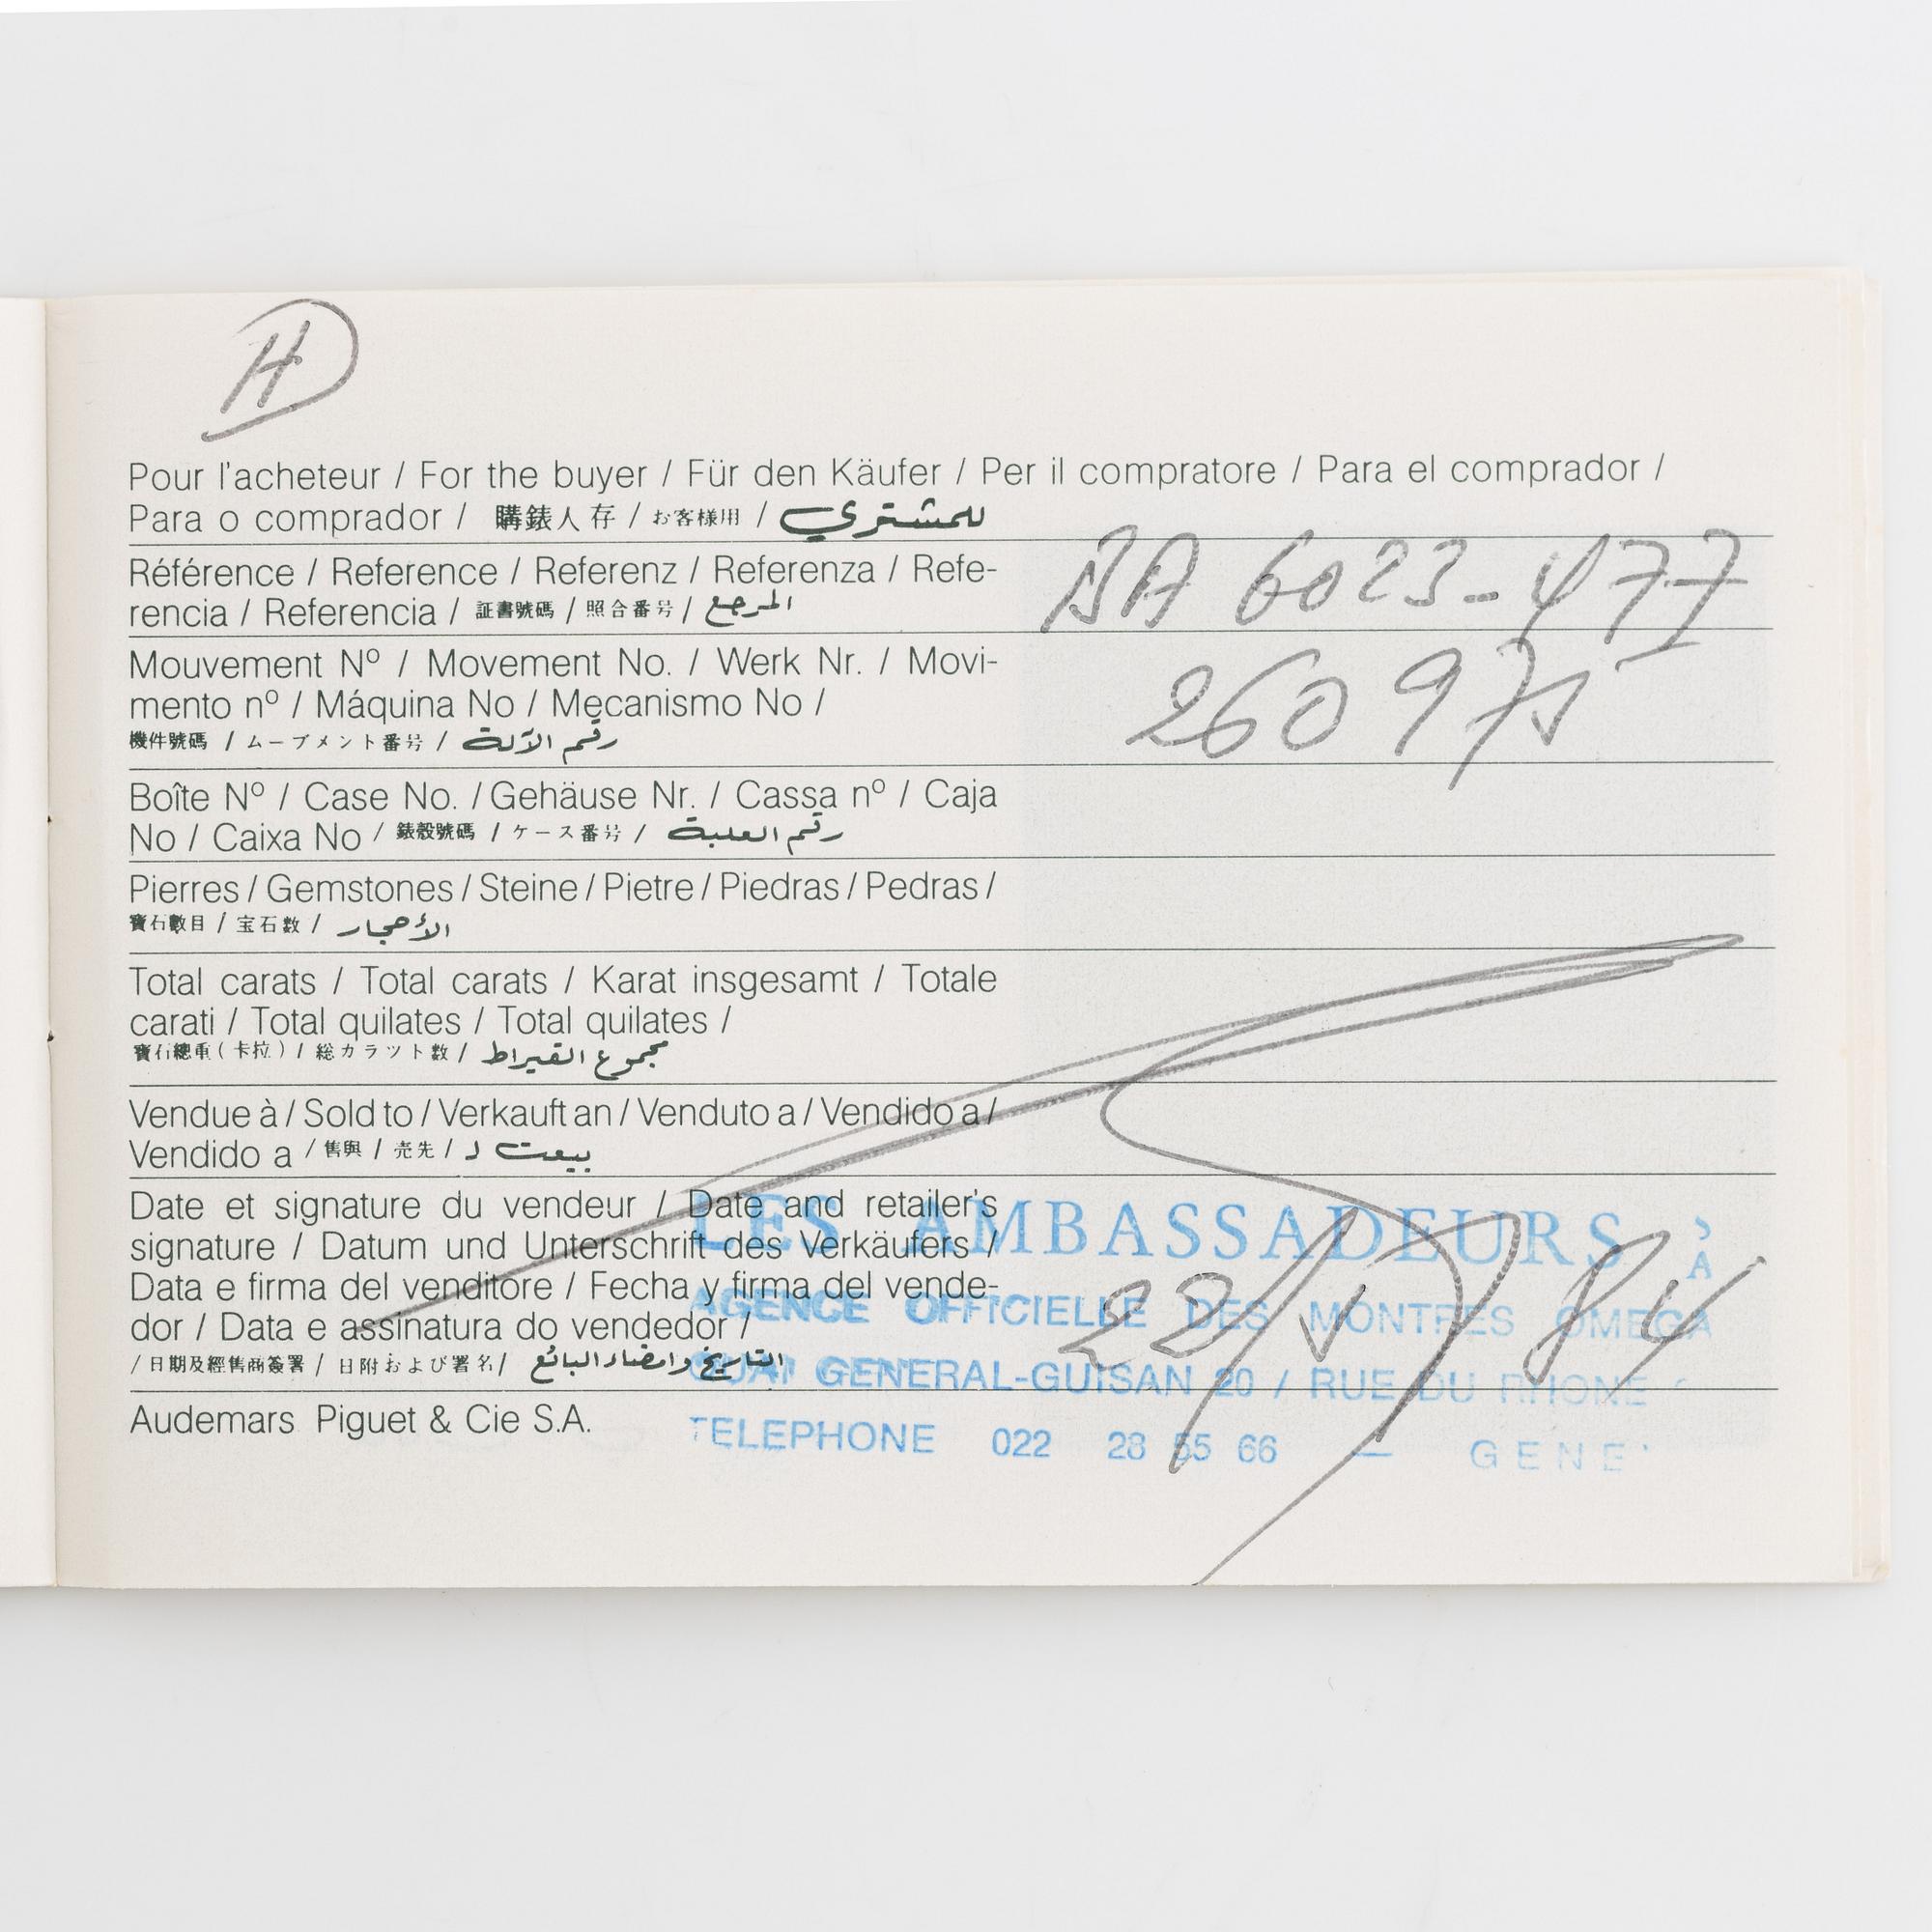 H
Pour l'acheteur / For the buyer / Für den Käufer / Per il compratore / Para el comprador /
Para o comprador / 購錶人存 / お客様用 / للمشتري
Référence / Reference / Referenz / Referenza / Refe-
rencia / Referencia / 証書號碼 / 照合番号 / المرجع
BA 6023-477
Mouvement Nº / Movement No. / Werk Nr. / Movi-
mento nº / Máquina No / Mecanismo No /
機件號碼 / ムーブメント番号 / رقم الآلة
260975
Boîte Nº / Case No. / Gehäuse Nr. / Cassa nº / Caja
No / Caixa No / 錶殼號碼 / ケース番号 / رقم العلبة
Pierres / Gemstones / Steine / Pietre / Piedras / Pedras /
寶石數目 / 宝石数 / الأحجار
Total carats / Total carats / Karat insgesamt / Totale
carati / Total quilates / Total quilates /
寶石總重(卡拉) / 総カラット数 / مجموع القيراط
Vendue à / Sold to / Verkauft an / Venduto a / Vendido a /
Vendido a / 售與 / 売先 / بيعت لـ
Date et signature du vendeur / Date and retailer's
signature / Datum und Unterschrift des Verkäufers /
Data e firma del venditore / Fecha y firma del vende-
dor / Data e assinatura do vendedor /
/ 日期及經售商簽署 / 日附および署名 / التاريخ وامضاء البائع
LES AMBASSADEURS
AGENCE OFFICIELLE DES MONTRES OMEGA
QUAI GENERAL-GUISAN 20 / RUE DU RHONE
TELEPHONE 022 28 55 66 — GENE
Audemars Piguet & Cie S.A.